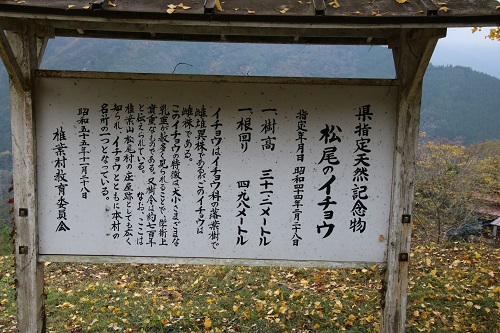 県指定天然記念物
松尾のイチョウ
指定年月日 昭和四十四年二月二十八日
一、樹高 三十二メートル
一、根回り 四、九八メートル
イチョウはイチョウ科の落葉樹で
雌雄異株であるがこのイチョウは
雌株である。
このイチョウの特徴は大小さまざまな
乳垂が数多く見られることで、学術上
貴重なものである。又樹令は約七百年
と伝えられている。なお、ここは
椎葉山松尾村の庄屋跡としても広く
知られ、イチョウとともに本村の
名所の一つとなっている。
昭和五十五年十一月二十八日
椎葉村教育委員会